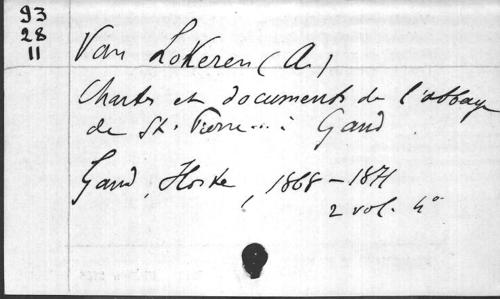 93
28
11
Van Lokeren (A.)
Chartes et documents de l'abbaye
de St. Pierre... à Gand
Gand, Hoste, 1868-1871
2 vol. 4°